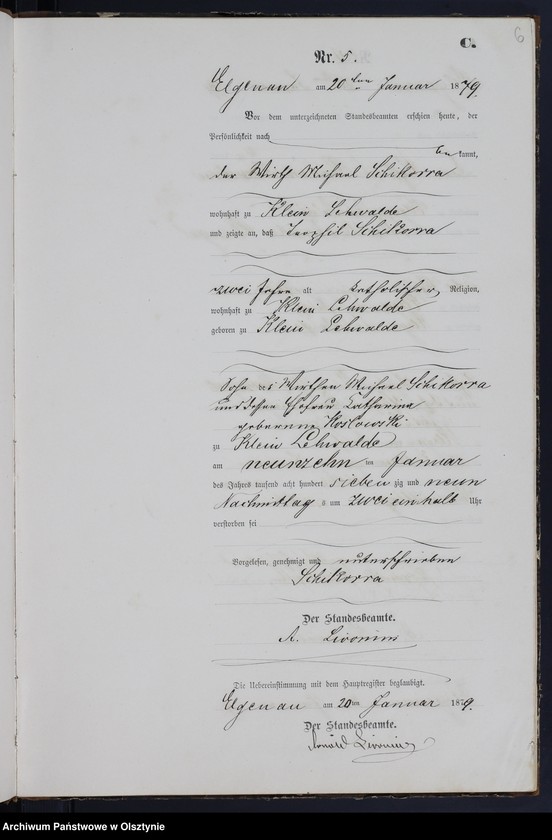 6
C.
Nr. 5.
Elgenau am 20ten Januar 1879.
Vor dem unterzeichneten Standesbeamten erschien heute, der
Persönlichkeit nach
bekannt,
der Wirth Michael Schikorra
wohnhaft zu Klein Lehwalde
und zeigte an, daß Teophil Schikorra
zwei Jahre alt katholischer Religion,
wohnhaft zu Klein Lehwalde
geboren zu Klein Lehwalde
Sohn des Wirthen Michael Schikorra
und dessen Ehefrau Katharina
geborenne Koslowski
zu Klein Lehwalde
am neunzehn ten Januar
des Jahres tausend acht hundert sieben zig und neun
Nachmittags um zwei ein halb Uhr
verstorben sei
Vorgelesen, genehmigt und unterschrieben
Schikorra
Der Standesbeamte.
A. Livonius
Die Uebereinstimmung mit dem Hauptregister beglaubigt.
Elgenau am 20ten Januar 1879.
Der Standesbeamte.
Livonius
Archiwum Państwowe w Olsztynie